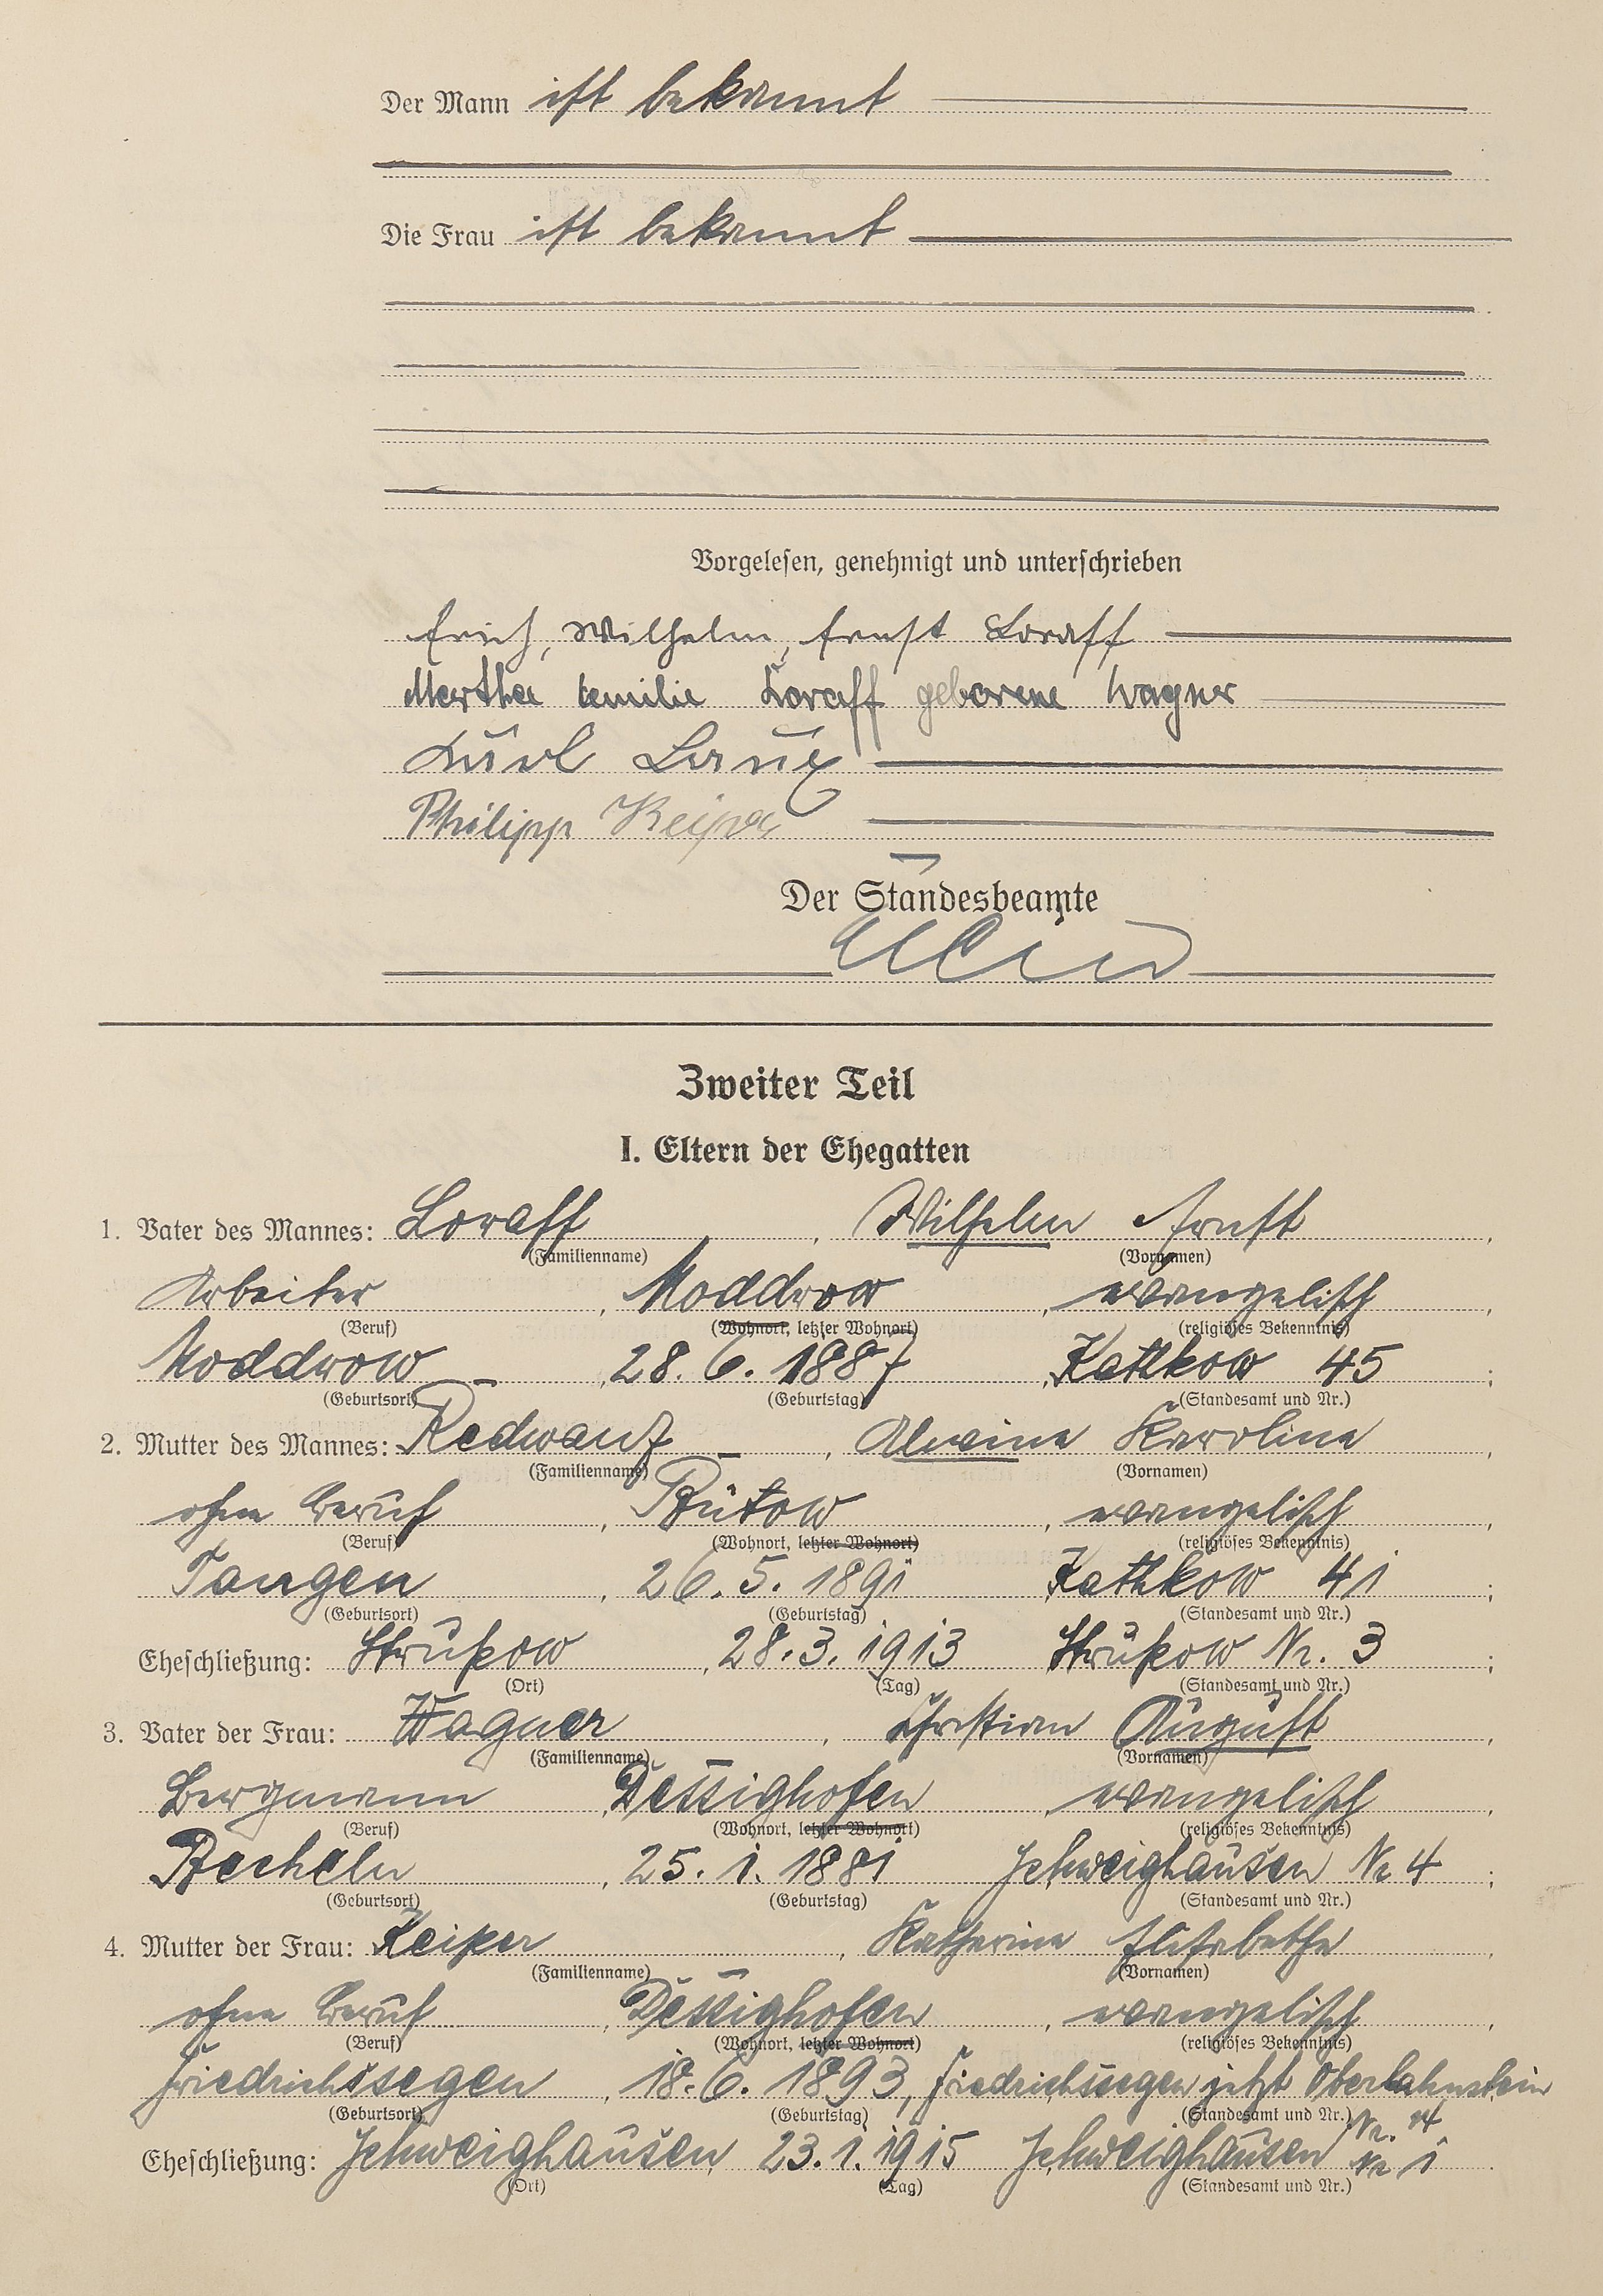 Der Mann ist bekannt
Die Frau ist bekannt
Vorgelesen, genehmigt und unterschrieben
Erich, Wilhelm, Ernst Loraff
Martha Emilie Loraff geborene Wagner
Karl Laux
Philipp Keiper
Der Standesbeamte
Zweiter Teil
I. Eltern der Ehegatten
1. Vater des Mannes: Loraff, Wilhelm Ernst,
(Familienname) (Vornamen)
Arbeiter, Moddrow, evangelisch,
(Beruf) (Wohnort, letzter Wohnort) (religiöses Bekenntnis)
Moddrow, 28. 6. 1887, Kathkow 45;
(Geburtsort) (Geburtstag) (Standesamt und Nr.)
2. Mutter des Mannes: Redwanz, Alwine Karoline,
(Familienname) (Vornamen)
ohne Beruf, Bütow, evangelisch,
(Beruf) (Wohnort, letzter Wohnort) (religiöses Bekenntnis)
Tangen, 26. 5. 1891 Kathkow 41;
(Geburtsort) (Geburtstag) (Standesamt und Nr.)
Eheschließung: Strußow, 28. 3. 1913 Strußow Nr. 3;
(Ort) (Tag) (Standesamt und Nr.)
3. Vater der Frau: Wagner, Christian August,
(Familienname) (Vornamen)
Bergmann, Dessighofen, evangelisch,
(Beruf) (Wohnort, letzter Wohnort) (religiöses Bekenntnis)
Becheln, 25. 1. 1881 Schweighausen Nr 4;
(Geburtsort) (Geburtstag) (Standesamt und Nr.)
4. Mutter der Frau: Keiper, Katharine Elisabethe,
(Familienname) (Vornamen)
ohne Beruf, Dessighofen, evangelisch,
(Beruf) (Wohnort, letzter Wohnort) (religiöses Bekenntnis)
Friedrichssegen, 18. 6. 1893, Friedrichssegen jetzt Oberlahnstein
(Geburtsort) (Geburtstag) (Standesamt und Nr.) Nr. 14
Eheschließung: Schweighausen, 23. 1. 1915 Schweighausen Nr 1.
(Ort) (Tag) (Standesamt und Nr.)